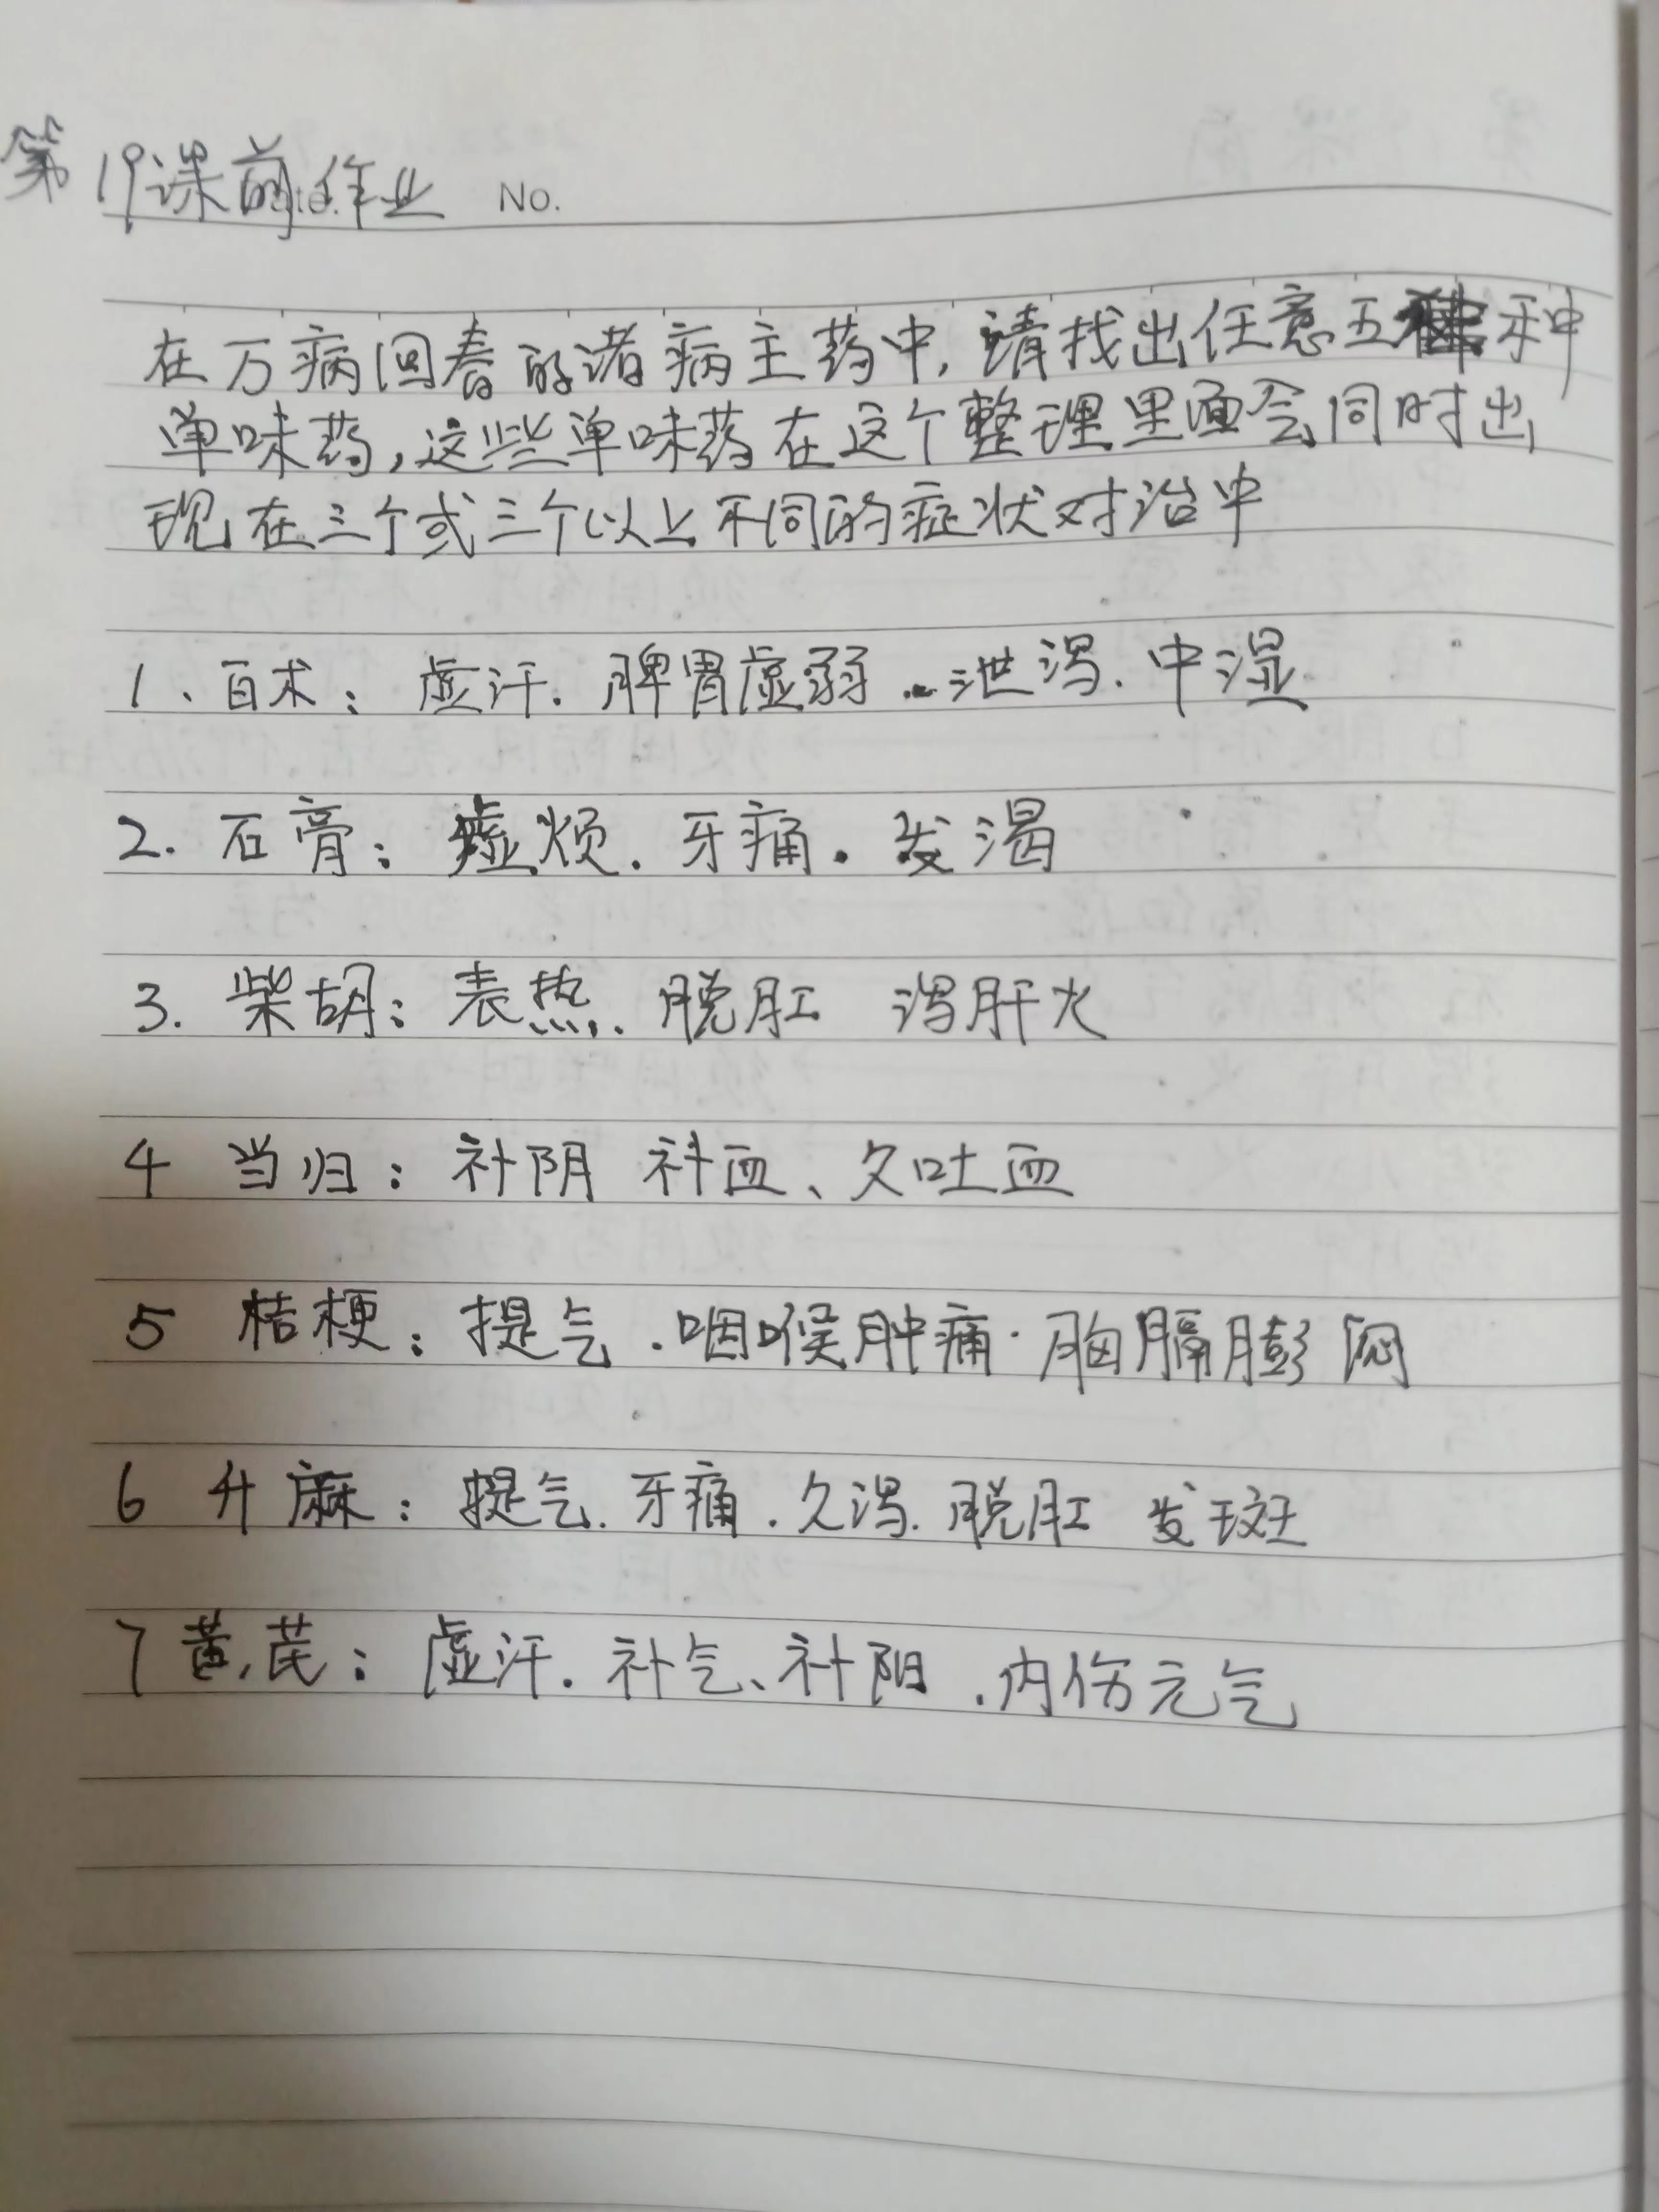 第19课前作业 No.
在万病回春的诸病主药中,请找出任意五种
单味药,这些单味药在这个整理里面会同时出
现在三个或三个以上不同的症状对治中
1、百术:虚汗.脾胃虚弱.泄泻.中湿
2.石膏:虚烦.牙痛.发渴
3.柴胡:表热.脱肛 泻肝火
4 当归:补阴 补血、久吐血
5 桔梗:提气.咽喉肿痛.胸膈膨闷
6 升麻:提气.牙痛.久泻.脱肛 发斑
7黄芪:虚汗.补气、补阳.内伤元气